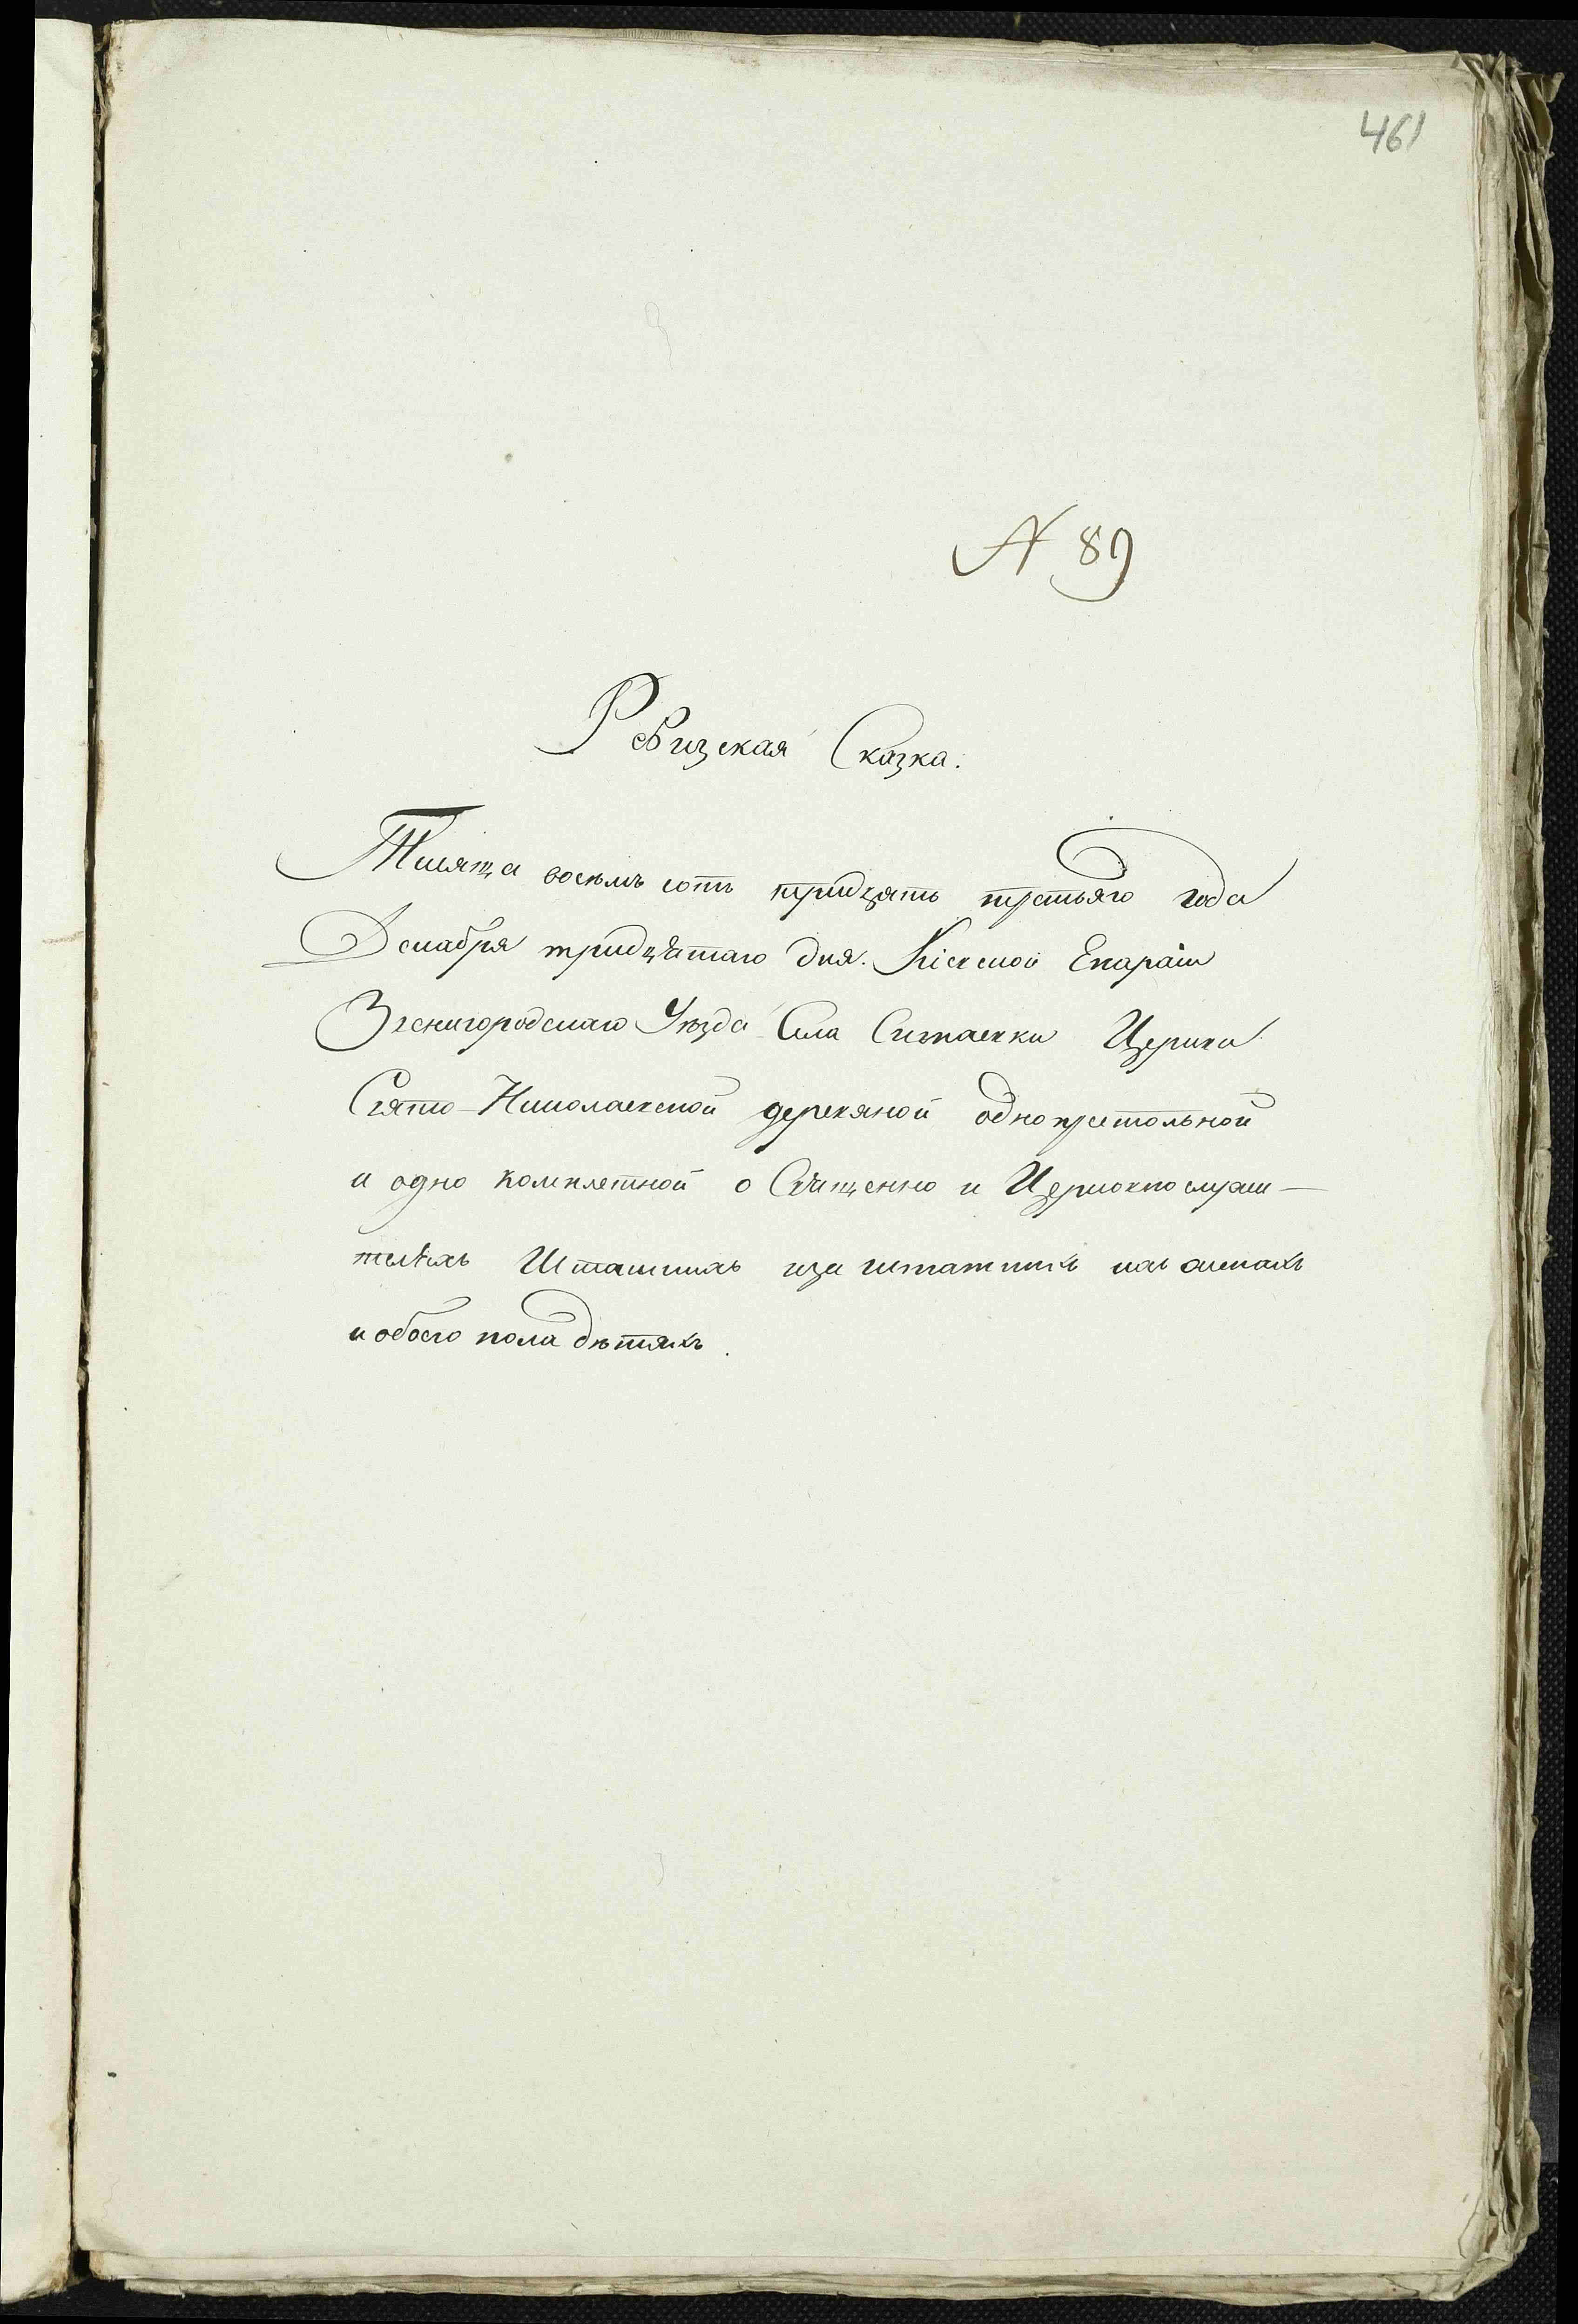 461
№ 89
Ревизская Сказка.
Тисяща восемъ сотъ тридцять третьяго года
Декабря тридцятаго дня. Кіевской Епархіи
Звенигородскаго Уѣзда Села Ситаевки Церкви
Свято-Николаевской деревяной однопрестольной
и одно комплетной о Священно и Церковнослужи-
телѣхъ Штатнихъ и за штатнихъ ихъ женахъ
и обоего пола дѣтяхъ.